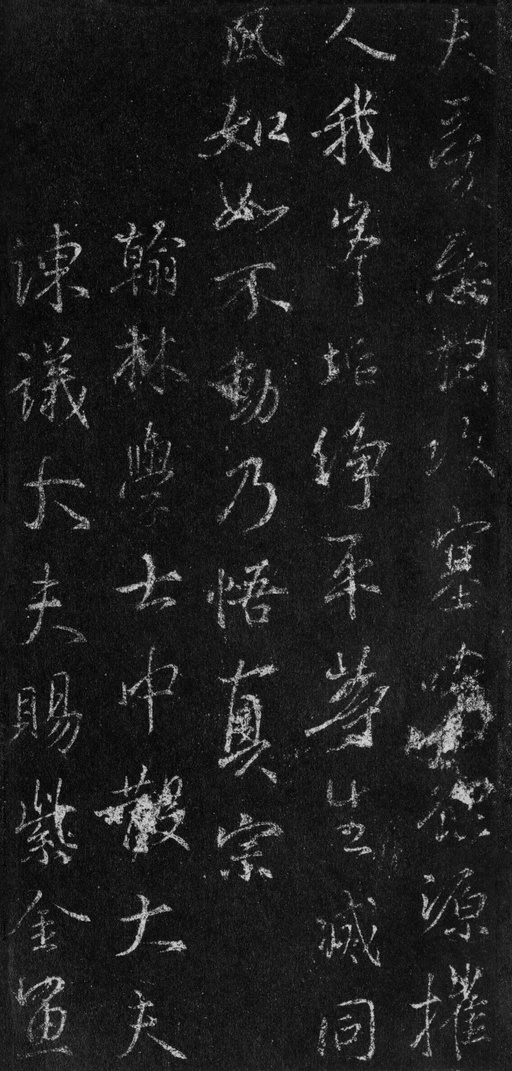 夫塞嗜慾源摧
人我峯垢淨平等生滅同
風如如不動乃悟真宗
翰林學士中散大夫
諫議大夫賜紫金魚